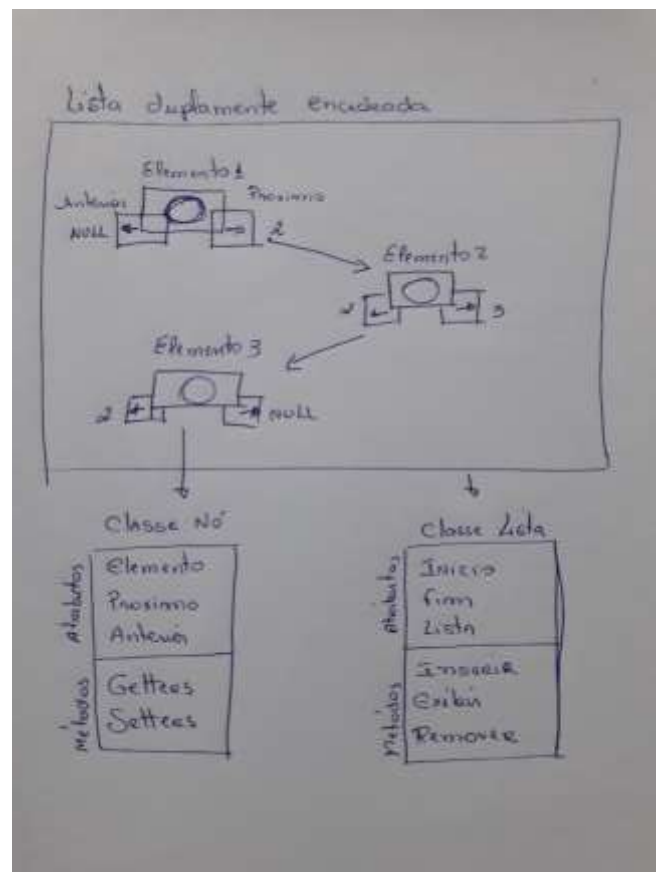 Lista duplamente encadeada
Elemento 1
Anterior
Proximo
NULL
2
Elemento 2
2
3
Elemento 3
2
NULL
Classe Nó
Atributos
Elemento
Proximo
Anterior
Métodos
Getters
Setters
Classe Lista
Atributos
Inicio
Fim
Lista
Métodos
Inserir
Exibir
Remover